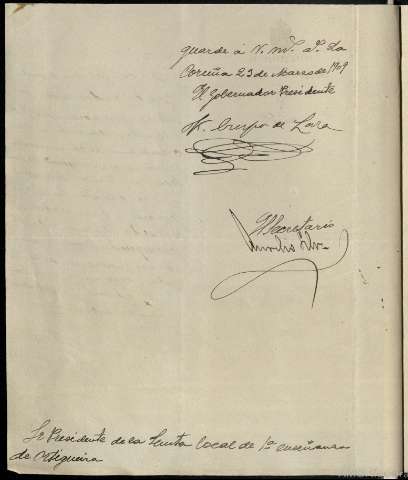 guarde á V. m.s a.s La
Coruña 23 de Marzo de 1909
El Gobernador Presidente
M. Crespo de Lara
El Secretario
Sr Presidente de la Junta local de 1ª enseñanza
de Ortigueira